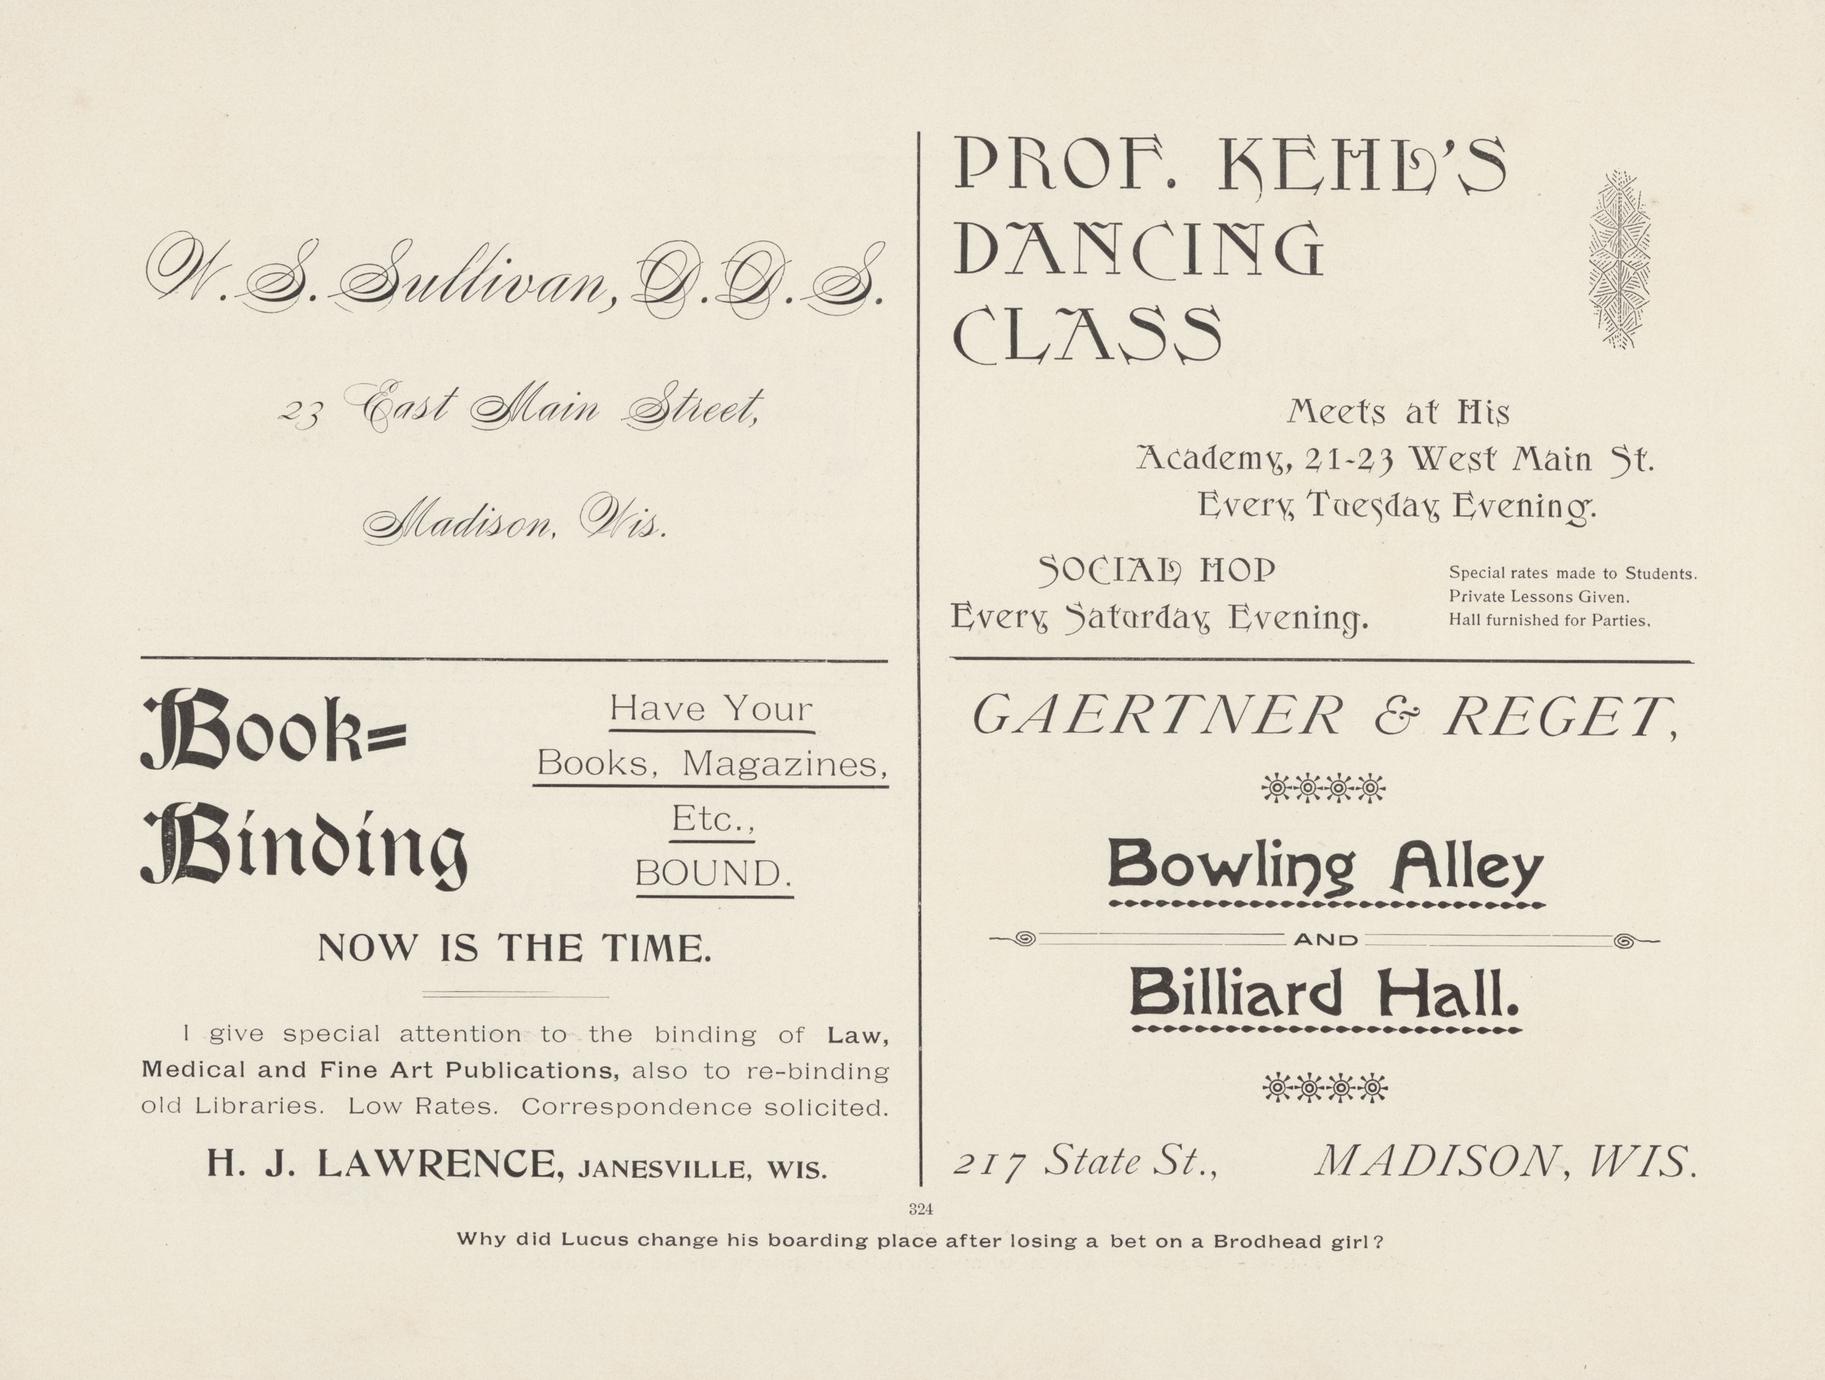 W. S. Sullivan, D. D. S.
23 East Main Street,
Madison, Wis.
PROF. KEHL'S
DANCING
CLASS
Meets at His
Academy, 21-23 West Main St.
Every Tuesday Evening.
SOCIAL HOP
Every Saturday Evening.
Special rates made to Students.
Private Lessons Given.
Hall furnished for Parties.
Book=
Binding
Have Your
Books, Magazines,
Etc.,
BOUND.
NOW IS THE TIME.
I give special attention to the binding of Law,
Medical and Fine Art Publications, also to re-binding
old Libraries. Low Rates. Correspondence solicited.
H. J. LAWRENCE, JANESVILLE, WIS.
GAERTNER & REGET,
Bowling Alley
AND
Billiard Hall.
217 State St., MADISON, WIS.
324
Why did Lucus change his boarding place after losing a bet on a Brodhead girl?